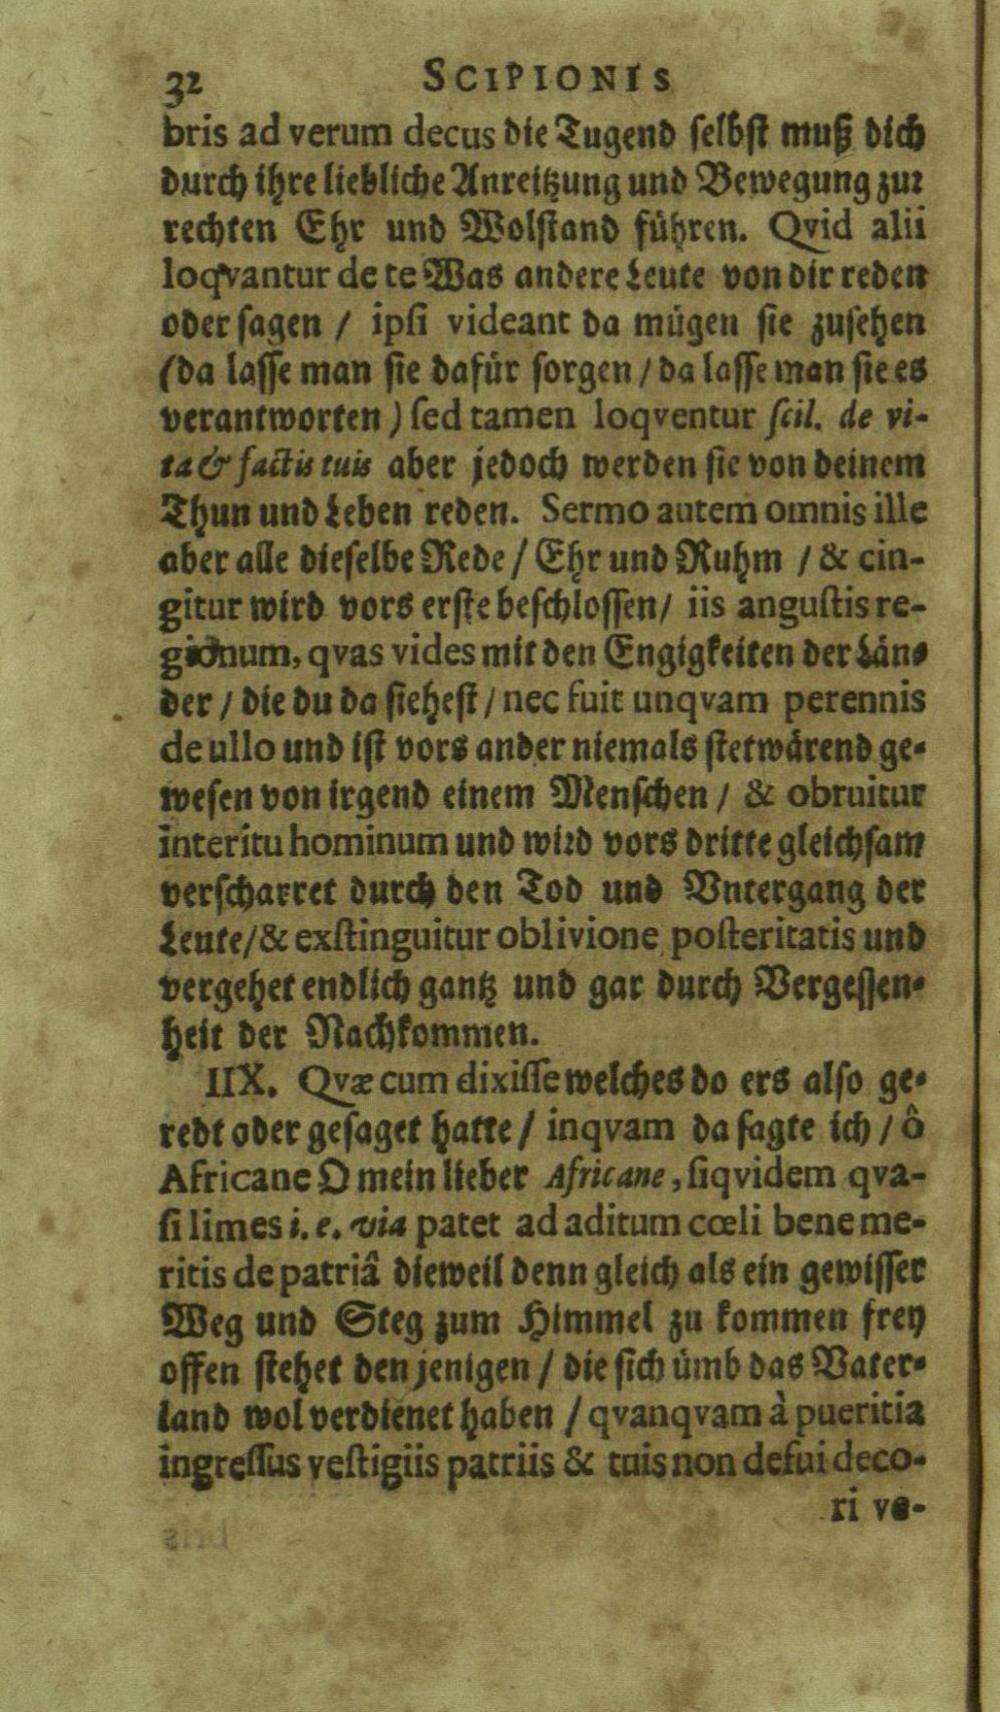 32 SCIPIONIS
bris ad verum decus die Tugend ſelbſt muß dich
durch ihre liebliche Anreitzung und Bewegung zur
rechten Ehr und Wolſtand führen. Qvid alii
loqvantur de te Was andere Leute von dir reden
oder ſagen / ipſi videant da mügen ſie zuſehen
(da laſſe man ſie dafür ſorgen / da laſſe man ſie es
verantworten) ſed tamen loqventur ſcil. de vi-
ta & factis tuis aber jedoch werden ſie von deinem
Thun und Leben reden. Sermo autem omnis ille
aber alle dieſelbe Rede / Ehr und Ruhm / & cin-
gitur wird vors erſte beſchloſſen / iis anguſtis re-
gionum, qvas vides mit den Engigkeiten der Län-
der / die du da ſieheſt / nec fuit unqvam perennis
de ullo und iſt vors ander niemals ſtetwärend ge-
weſen von irgend einem Menſchen / & obruitur
interitu hominum und wird vors dritte gleichſam
verſcharret durch den Tod und Vntergang der
Leute / & exſtinguitur oblivione poſteritatis und
vergehet endlich gantz und gar durch Vergeſſen-
heit der Nachkommen.
IIX. Qvæ cum dixiſſe welches do ers alſo ge-
redt oder geſaget hatte / inqvam da ſagte ich / ô
Africane O mein lieber Africane, ſiqvidem qva-
ſi limes i. e. via patet ad aditum cœli bene me-
ritis de patriâ dieweil denn gleich als ein gewiſſer
Weg und Steg zum Himmel zu kommen frey
offen ſtehet den jenigen / die ſich ümb das Vater-
land wol verdienet haben / qvanqvam à pueritia
ingreſſus veſtigiis patriis & tuis non defui deco-
ri ve-